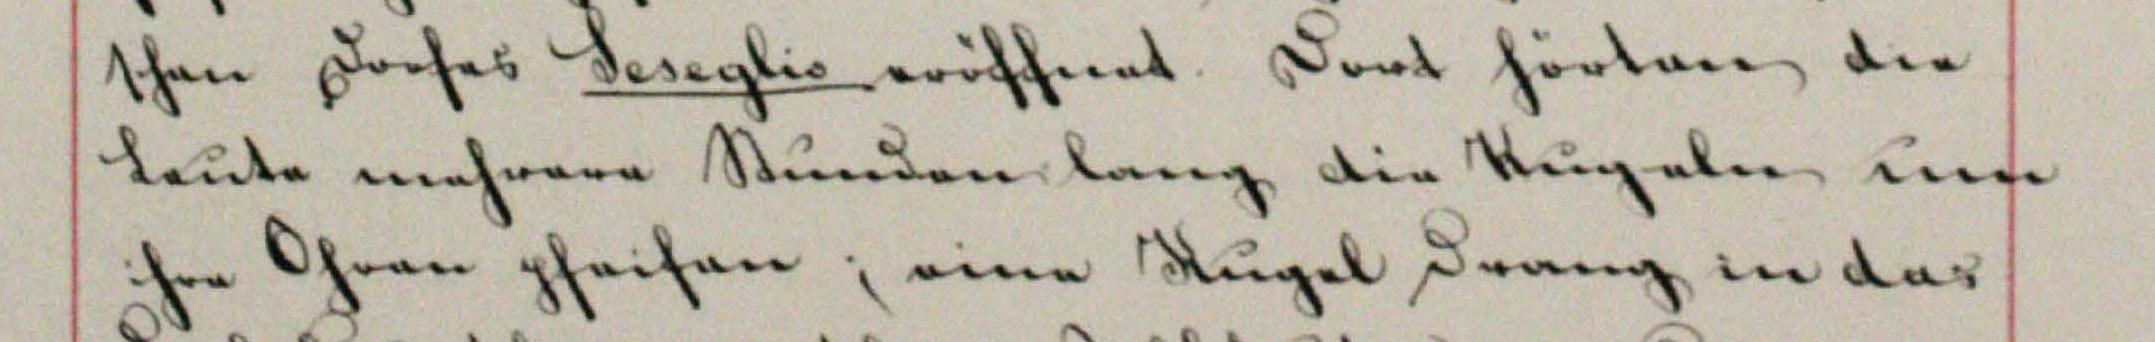 schen Dorfes Seseglio eröffnet. Dort hörten die
Leute mehrere Stunden lang die Kugeln um
ihre Ohren pfeifen; eine Kugel drang in das